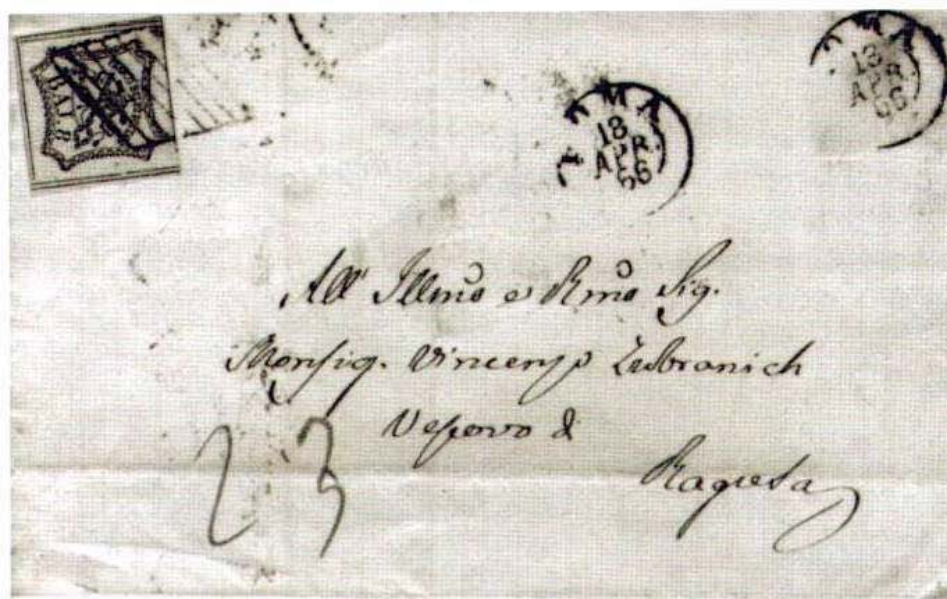 ROMA
18
APR.
66
ROMA
18
APR.
66
All' Illmo e Rmo Sig.
Monsig. Vincenzo Zubranich
Vescovo di
Ragusa
23